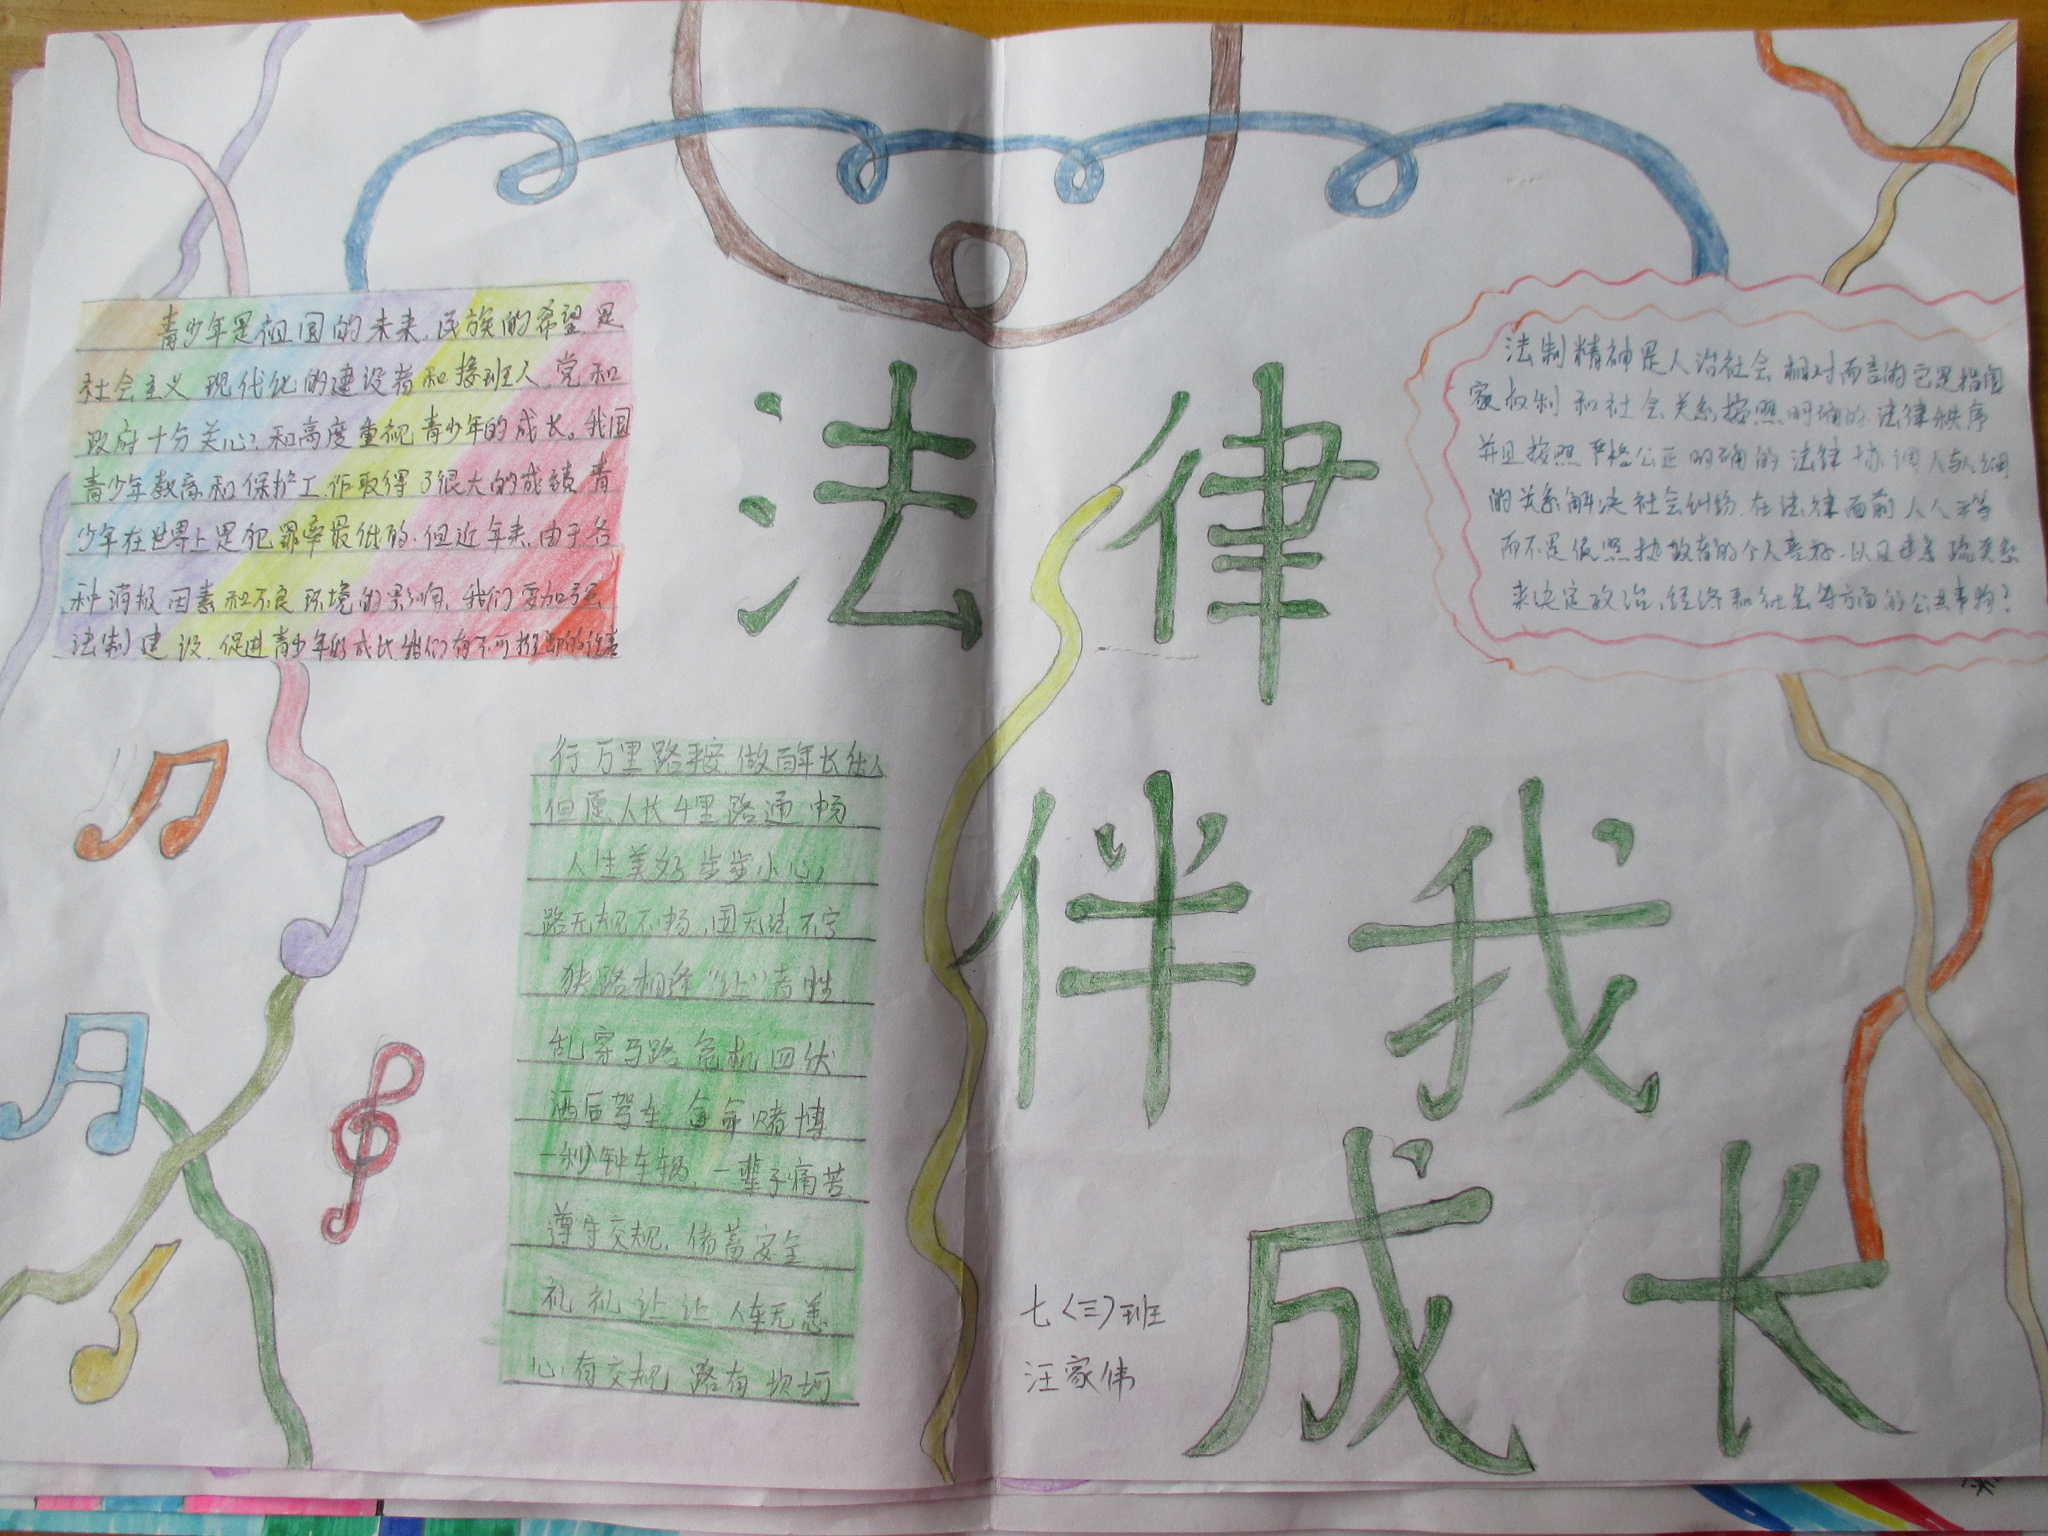 法律
伴我
成长
青少年是祖国的未来,民族的希望是
社会主义现代化的建设者和接班人,党和
政府十分关心,和高度重视青少年的成长。我国
青少年教育和保护工作取得了很大的成绩青
少年在世界上是犯罪率最低的.但近年来,由于各
种消极因素和不良环境的影响,我们要加强
法制建设,促进青少年的成长我们有不可推卸的
行万里路 做百年长
但愿人长 里路通畅
人生美好步步小心,
路无规不畅,国无法不宁
狭路相逢"让"者胜
乱穿马路 危机四伏
酒后驾车 拿命赌博
一秒钟车祸,一辈子痛苦
遵守交规,储蓄安全
礼礼让让 人车无恙
心有交规 路有坎坷
法制精神是人治社会相对而言的它是指国
家权制和社会关系按照明确的法律秩序
并且按照严格公正明确的法律协调人与人
的关系解决社会纠纷.在法律面前人人平等
而不是依照执政者的个人喜好.以及
来决定政治,经济和社会等方面的公共事物?
七〈三〉班
汪家伟